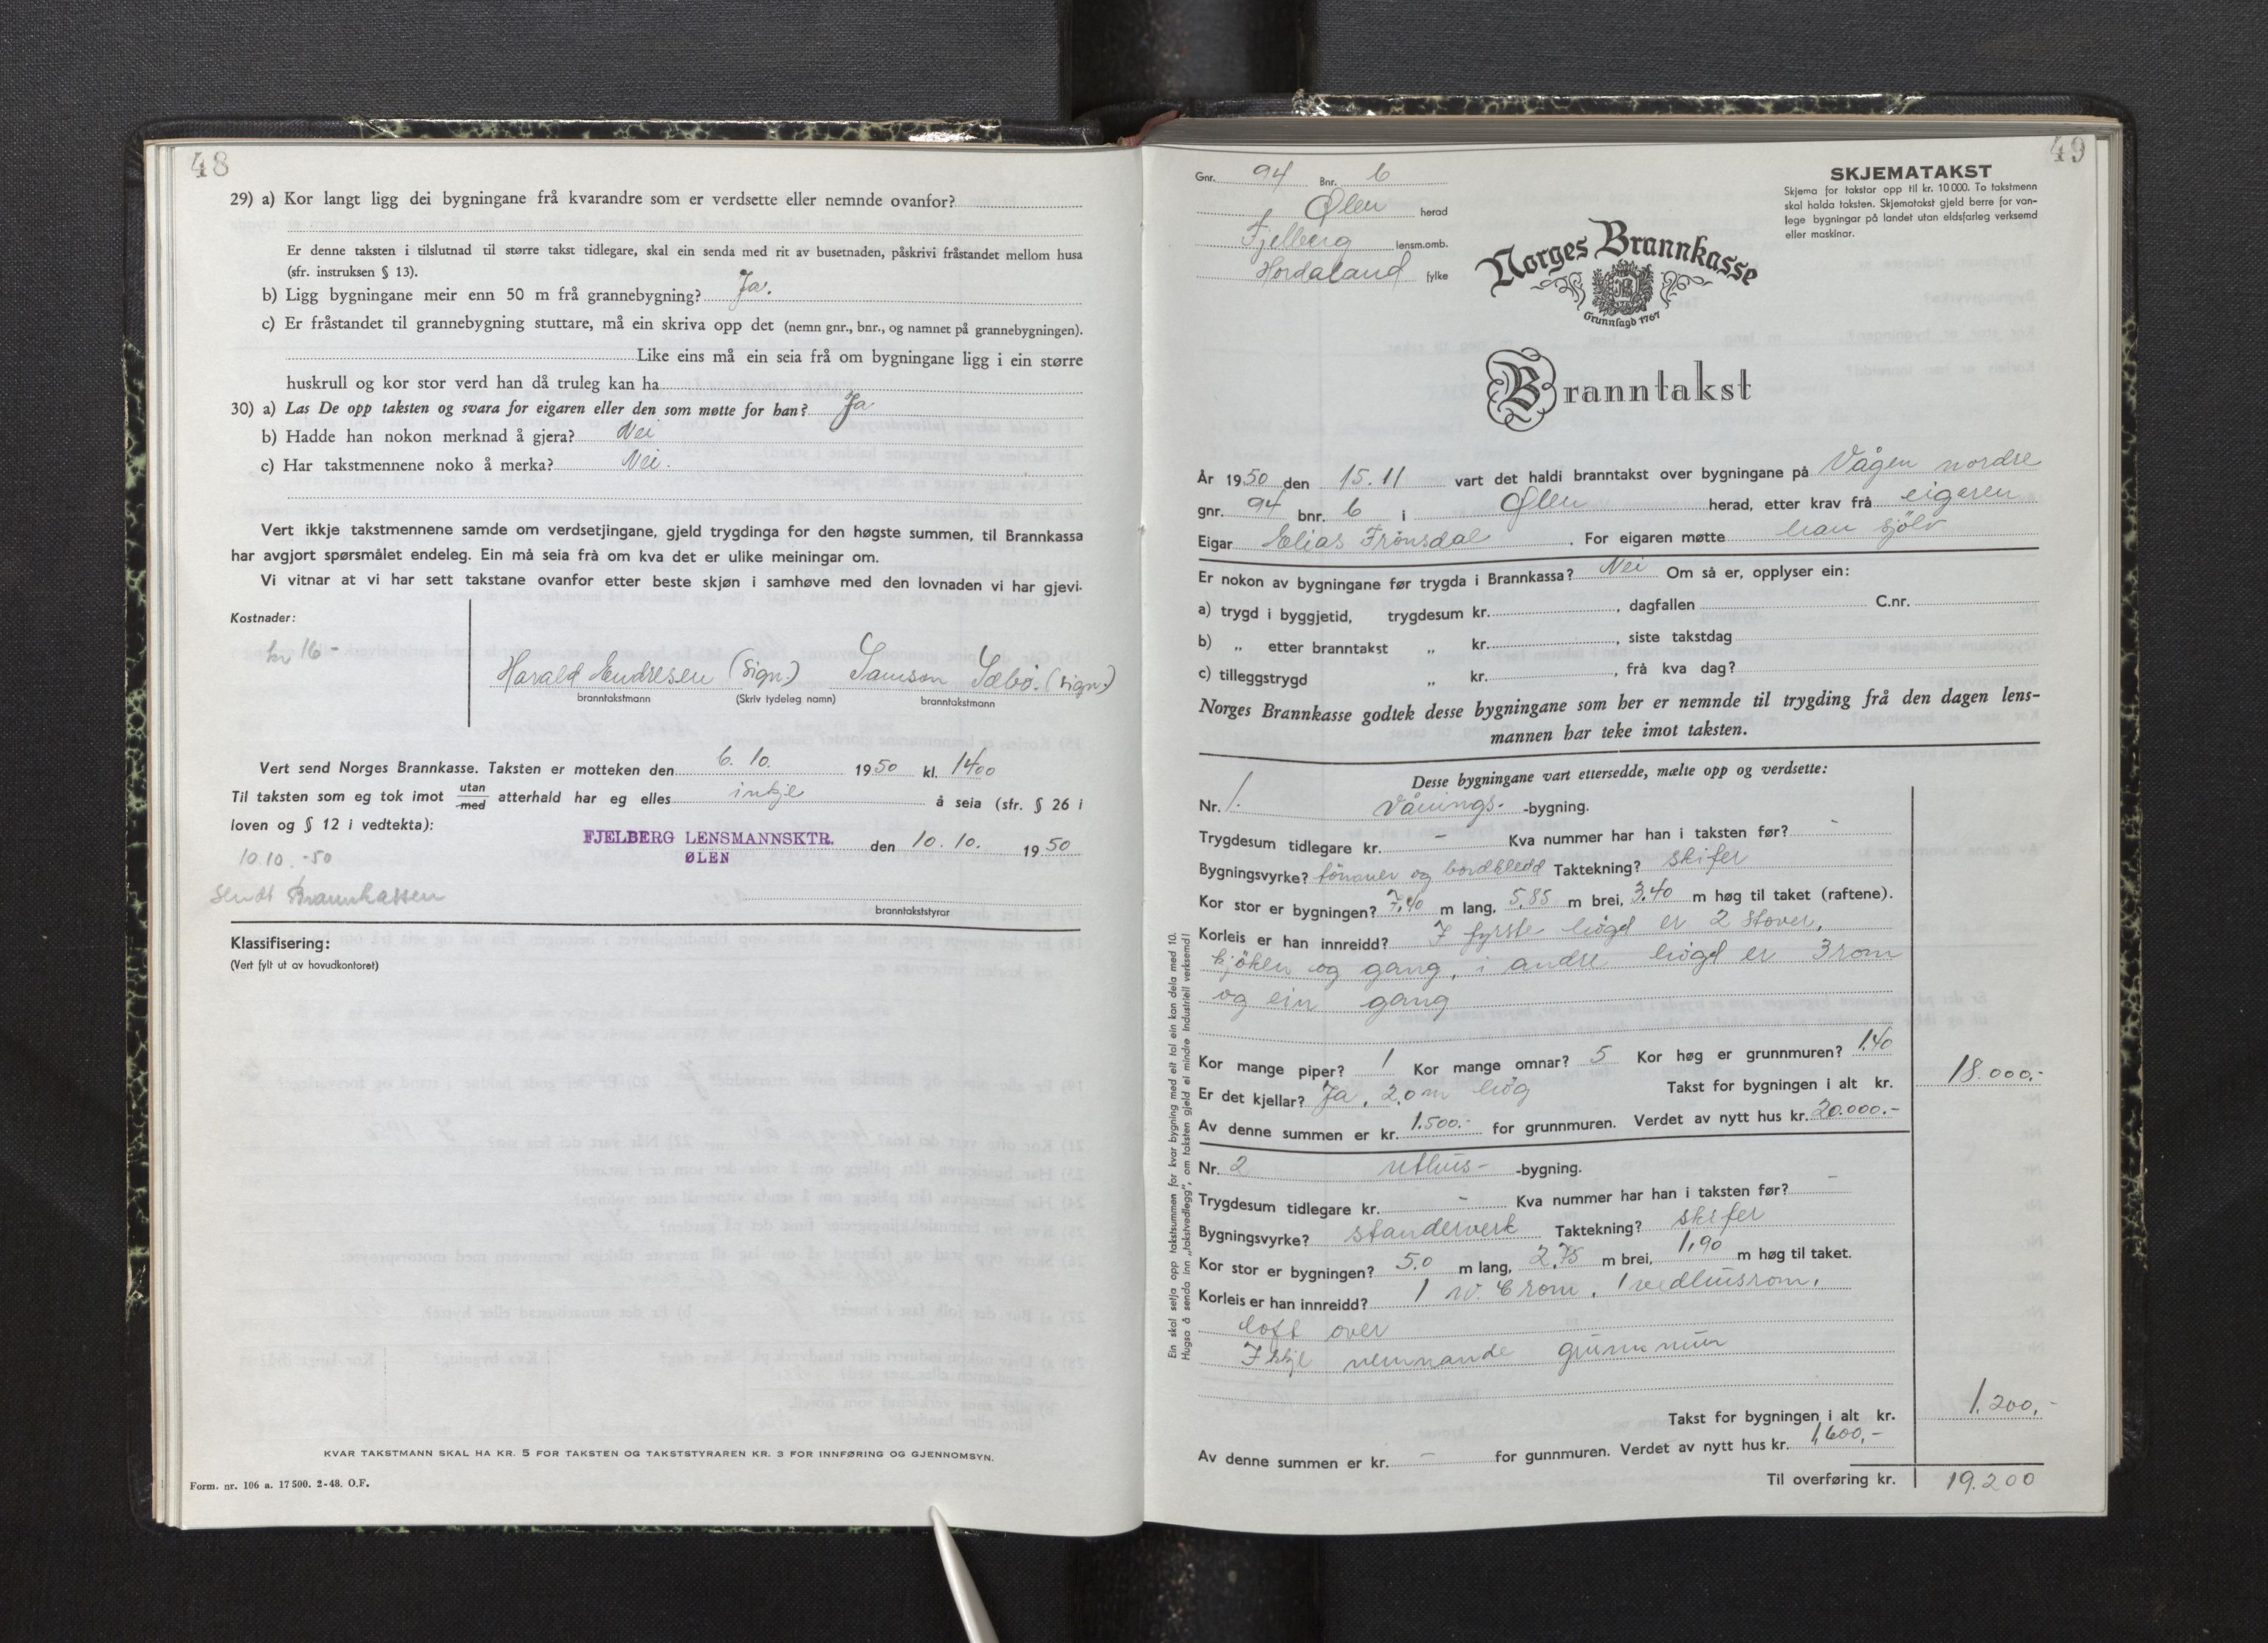 48
29) a) Kor langt ligg dei bygningane frå kvarandre som er verdsette eller nemnde ovanfor?
Er denne taksten i tilslutnad til større takst tidlegare, skal ein senda med rit av busetnaden, påskrivi fråstandet mellom husa
(sfr. instruksen § 13).
b) Ligg bygningane meir enn 50 m frå grannebygning? Ja.
c) Er fråstandet til grannebygning stuttare, må ein skriva opp det (nemn gnr., bnr., og namnet på grannebygningen).
Like eins må ein seia frå om bygningane ligg i ein større
huskrull og kor stor verd han då truleg kan ha
30) a) Las De opp taksten og svara for eigaren eller den som møtte for han? Ja
b) Hadde han nokon merknad å gjera? Nei
c) Har takstmennene noko å merka? Nei.
Vert ikkje takstmennene samde om verdsetjingane, gjeld trygdinga for den høgste summen, til Brannkassa
har avgjort spørsmålet endeleg. Ein må seia frå om kva det er ulike meiningar om.
Vi vitnar at vi har sett takstane ovanfor etter beste skjøn i samhøve med den lovnaden vi har gjevi.
Kostnader:
kr 16-
Harald Endresen (sign.) Samson Sæbö. (sign.)
branntakstmann (Skriv tydeleg namn) branntakstmann
Vert send Norges Brannkasse. Taksten er motteken den 6. 10. 1950 kl. 1400
Til taksten som eg tok imot utan/med atterhald har eg elles inkje å seia (sfr. § 26 i
loven og § 12 i vedtekta):
FJELBERG LENSMANNSKTR. den 10. 10. 1950
ØLEN
10.10.-50
Sendt Brannkassen
branntakststyrar
Klassifisering:
(Vert fylt ut av hovudkontoret)
KVAR TAKSTMANN SKAL HA KR. 5 FOR TAKSTEN OG TAKSTSTYRAREN KR. 3 FOR INNFØRING OG GJENNOMSYN.
Form. nr. 106 a. 17 500. 2-48. O.F.
49
Gnr. 94 Bnr. 6
Ølen herad
Fjelberg lensm.omb.
Hordaland fylke
SKJEMATAKST
Skjema for takstar opp til kr. 10 000. To takstmenn
skal halda taksten. Skjematakst gjeld berre for van-
lege bygningar på landet utan eldsfarleg verksemd
eller maskinar.
Norges Brannkasse
Grunnlagd 1767
Branntakst
År 1950 den 15. 11 vart det haldi branntakst over bygningane på Vågen nordre
gnr. 94 bnr. 6 i Ølen herad, etter krav frå eigaren
Eigar Elias Frönsdal. For eigaren møtte han sjölv
Er nokon av bygningane før trygda i Brannkassa? Nei Om så er, opplyser ein:
a) trygd i byggjetid, trygdesum kr. , dagfallen C.nr.
b) „ etter branntakst „ kr. , siste takstdag
c) tilleggstrygd „ kr. , frå kva dag?
Norges Brannkasse godtek desse bygningane som her er nemnde til trygding frå den dagen lens-
mannen har teke imot taksten.
Desse bygningane vart ettersedde, mælte opp og verdsette:
Nr. 1. Vånings- -bygning.
Trygdesum tidlegare kr. - Kva nummer har han i taksten før? -
Bygningsvyrke? tömmer og bordkledd Taktekning? skifer
Kor stor er bygningen? 7,40 m lang, 5,85 m brei, 3,40 m høg til taket (raftene).
Korleis er han innreidd? I fyrste högd er 2 stover,
kjöken og gang, i andre högd er 3 rom
og ein gang
Kor mange piper? 1 Kor mange omnar? 5 Kor høg er grunnmuren? 1,40
Er det kjellar? Ja, 2,0 m hög Takst for bygningen i alt kr. 18.000,-
Av denne summen er kr. 1.500.- for grunnmuren. Verdet av nytt hus kr. 20.000.-
Nr. 2 uthus- -bygning.
Trygdesum tidlegare kr. - Kva nummer har han i taksten før? -
Bygningsvyrke? standerverk Taktekning? skifer
Kor stor er bygningen? 5,0 m lang, 2,75 m brei, 1,90 m høg til taket.
Korleis er han innreidd? 1 W.C rom, 1 vedhusrom,
loft over
Ikkje nemnande grunnmur
Takst for bygningen i alt kr. 1.200,-
Av denne summen er kr. - for gunnmuren. Verdet av nytt hus kr. 1,600,-
Til overføring kr. 19.200
Ein skal setja opp takstsummen for kvar bygning med eit tal ein kan dela med 10.
Hugsa å senda inn „takstvedlegg", om taksten gjeld ei mindre industriell verksemd!